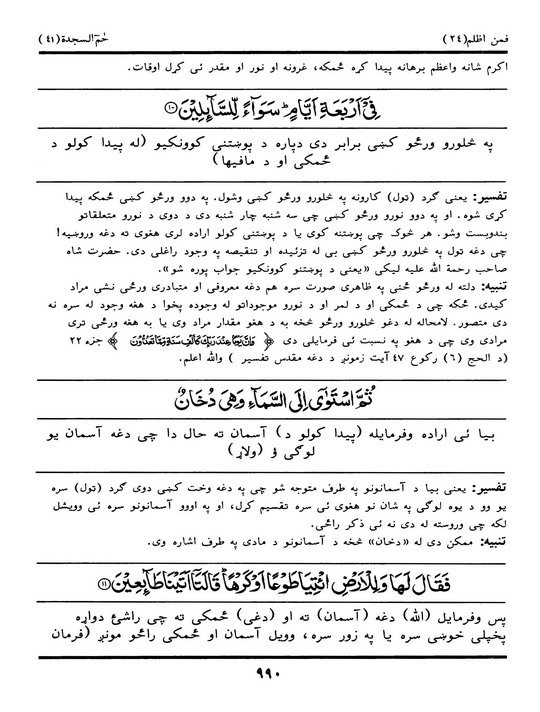 فمن اظلم(۲۴) حٰم السجدة(۴۱)
اکرم شانه واعظم برهانه پیدا کره ځمکه، غرونه او نور او مقدر ئی کړل اوقات.
فِیۡۤ اَرۡبَعَةِ اَیَّامٍ ؕ سَوَآءً لِّلسَّآئِلِیۡنَ ﴿۱۰﴾
په څلورو ورځو کښی برابر دی دپاره د پوښتنی کوونکیو (له پیدا کولو د
ځمکی او د مافیها)
تفسیر: یعنی گرد (ټول) کارونه په څلورو ورځو کښی وشول. په دوو ورځو کښی ځمکه پیدا
کړی شوه. او په دوو نورو ورځو کښی چی سه شنبه چار شنبه دی د دوی د نورو متعلقاتو
بندوبست وشو. هر څوک چی پوښتنه کوی یا د پوښتنی کولو اراده لری هغوی ته دغه وروښیه!
چی دغه ټول په څلورو ورځو کښی بی له تزئیده او تنقیصه په وجود راغلی دی. حضرت شاه
صاحب رحمة الله علیه لیکی «یعنی د پوښتنو کوونکیو جواب پوره شو».
تنبیه: دلته له ورځو ځنی په ظاهری صورت سره هم دغه معروفی او متبادری ورځی نشی مراد
کیدی. ځکه چی د ځمکی او د لمر او د نورو موجوداتو له وجوده پخوا د هغه وجود له سره نه
دی متصور. لامحاله له دغو څلورو ورځو څخه به د هغو مقدار مراد وی یا به هغه ورځی تری
مرادی وی چی د هغو په نسبت ئی فرمایلی دی ﴿وَاِنَّ یَوۡمًا عِنۡدَ رَبِّکَ کَاَلۡفِ سَنَةٍ مِّمَّا تَعُدُّوۡنَ﴾ جزء ۲۲
(د الحج (٦) رکوع ۴۷ آیت زمونږ د دغه مقدس تفسیر ) والله اعلم.
ثُمَّ اسۡتَوٰۤی اِلَی السَّمَآءِ وَهِیَ دُخَانٌ
بیا ئی اراده وفرمایله (پیدا کولو د) آسمان ته حال دا چی دغه آسمان یو
لوگی ؤ (ولاړ)
تفسیر: یعنی بیا د آسمانونو په طرف متوجه شو چی په دغه وخت کښی دوی گرد (ټول) سره
یو وو د یوه لوگی په شان نو هغوی ئی سره تقسیم کړل، او په اووو آسمانونو سره ئی وویشل
لکه چی وروسته له دی نه ئی ذکر راځی.
تنبیه: ممکن دی له «دخان» څخه د آسمانونو د مادی په طرف اشاره وی.
فَقَالَ لَهَا وَلِلۡاَرۡضِ ائۡتِیَا طَوۡعًا اَوۡ کَرۡهًا ؕ قَالَتَاۤ اَتَیۡنَا طَآئِعِیۡنَ ﴿۱۱﴾
پس وفرمایل (الله) دغه (آسمان) ته او (دغی) ځمکی ته چی راشئ دواړه
پخپلی خوښی سره یا په زور سره، وویل آسمان او ځمکی راځو مونږ (فرمان
۹۹۰